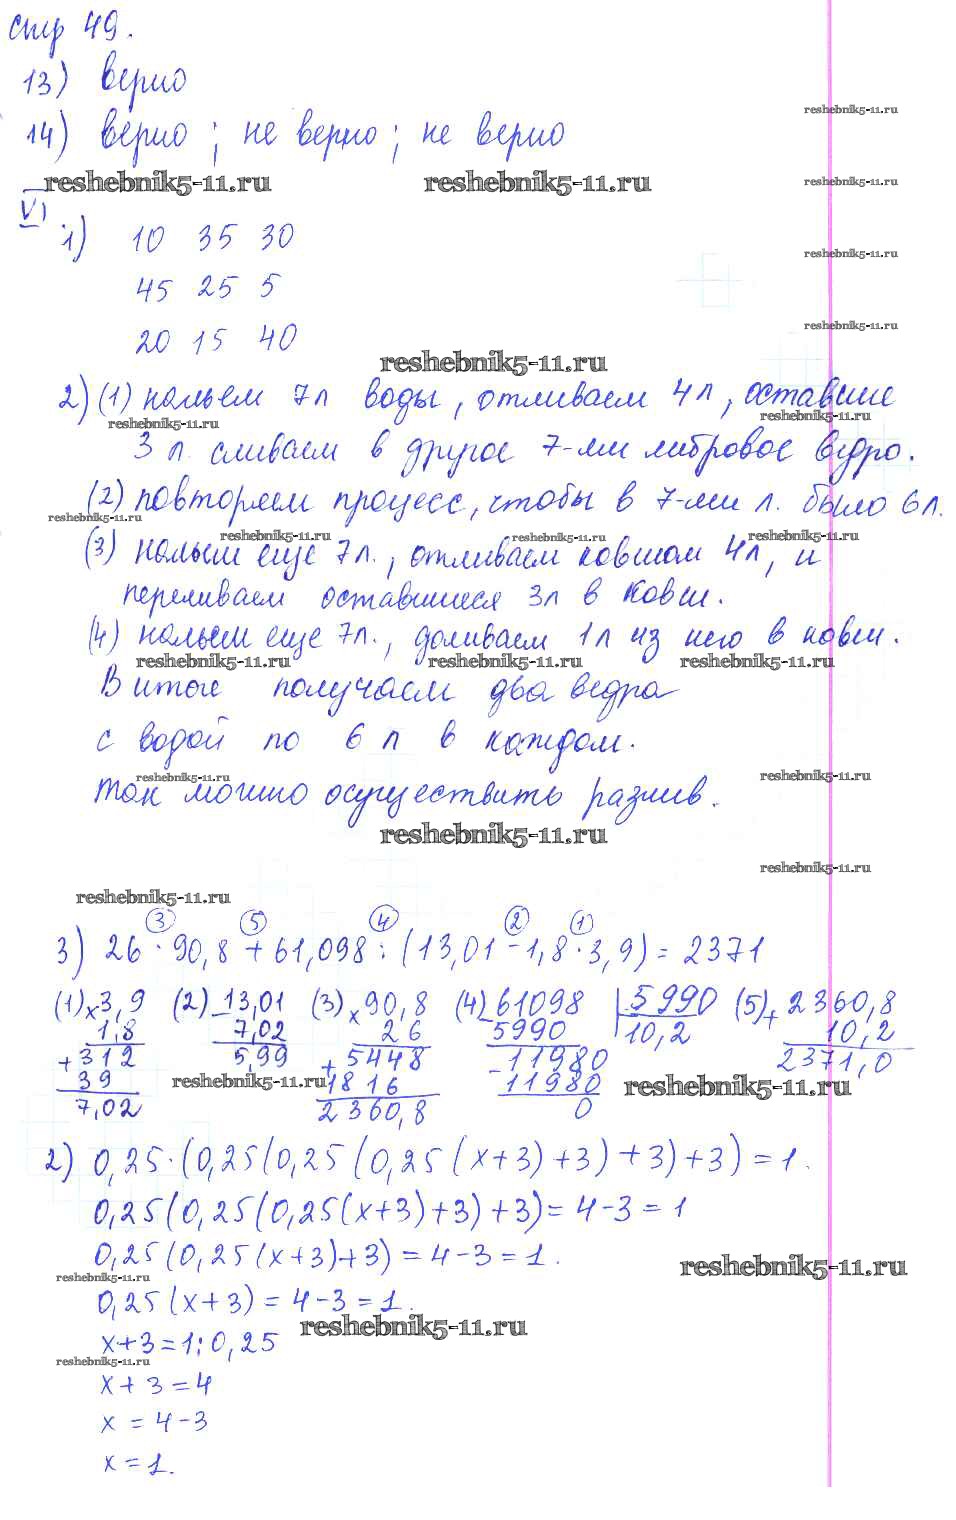 стр 49.
13) верно
14) верно ; не верно ; не верно
reshebnik5-11.ru reshebnik5-11.ru
VI
1) 10 35 30
45 25 5
20 15 40
reshebnik5-11.ru
2) (1) нальем 7л воды, отливаем 4л, оставшие
3 л. сливаем в другое 7-ми литровое ведро.
(2) повторяем процесс, чтобы в 7-ми л. было 6л.
(3) нальем еще 7л., отливаем ковшом 4л, и
переливаем оставшиеся 3л в ковш.
(4) нальем еще 7л., доливаем 1л из него в ковш.
reshebnik5-11.ru reshebnik5-11.ru reshebnik5-11.ru
В итоге получаем два ведра
с водой по 6 л в каждом.
Так можно осуществить разлив.
reshebnik5-11.ru
reshebnik5-11.ru
3 5 4 2 1
3) 26 · 90,8 + 61,098 : (13,01 - 1,8 · 3,9) = 2371
(1) × 3,9 (2) - 13,01 (3) × 90,8 (4) - 61098 | 5990 (5) + 2360,8
1,8 7,02 26 5990 10,2 10,2
+ 312 5,99 + 5448 - 11980 2371,0
39 1816 11980
7,02 2360,8 0
reshebnik5-11.ru reshebnik5-11.ru
2) 0,25·(0,25(0,25(0,25(x+3)+3)+3)+3) = 1.
0,25(0,25(0,25(x+3)+3)+3) = 4-3 = 1
0,25(0,25(x+3)+3) = 4-3 = 1.
reshebnik5-11.ru
0,25(x+3) = 4-3 = 1.
reshebnik5-11.ru
x+3 = 1:0,25
x+3 = 4
x = 4-3
x = 1.